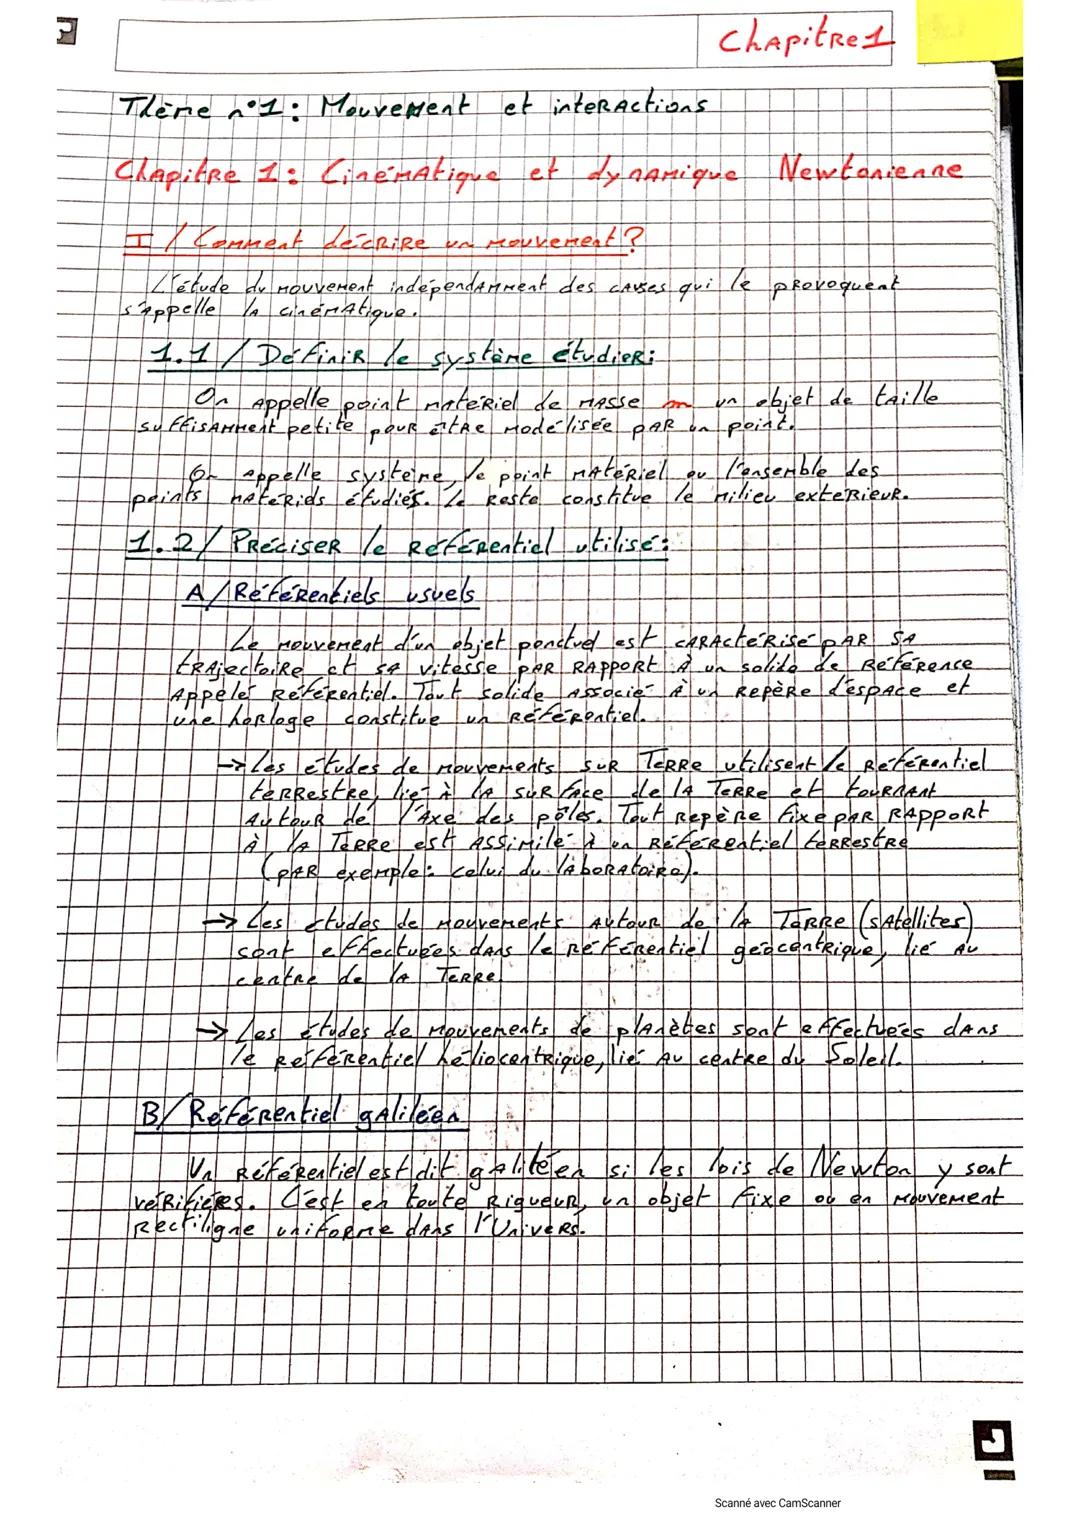 Chapitre 1
Thème n°1 : Mouvement et interactions
Chapitre 1 : Cinématique et dynamique Newtonienne
I / Comment décrire un mouvement ?
L'étude du mouvement indépendamment des causes qui le provoquent
s'appelle la cinématique.
1.1 / Définir le système étudier :
On appelle point matériel de masse m un objet de taille
suffisamment petite pour être modélisée par un point.
On appelle système, le point matériel ou l'ensemble des
points matériels étudiés. Le reste constitue le milieu exterieur.
1.2 / Préciser le référentiel utilisé :
A / Référentiels usuels
Le mouvement d'un objet ponctuel est caractérisé par sa
trajectoire et sa vitesse par rapport à un solide de référence
appelé référentiel. Tout solide associé à un repère d'espace et
une horloge constitue un référentiel.
→ Les études de mouvements sur Terre utilisent le référentiel
terrestre, lié à la surface de la Terre et tournant
autour de l'axe des pôles. Tout repère fixe par rapport
à la Terre est assimilé à un référentiel terrestre
(par exemple : celui du laboratoire).
→ Les études de mouvements autour de la Terre (satellites)
sont effectuées dans le référentiel géocentrique, lié au
centre de la Terre.
→ Les études de mouvements de planètes sont effectuées dans
le référentiel héliocentrique, lié au centre du Soleil.
B / Référentiel galiléen
Un référentiel est dit galiléen si les lois de Newton y sont
vérifiées. C'est en toute rigueur, un objet fixe ou en mouvement
rectiligne uniforme dans l'Univers.
Scanné avec CamScanner